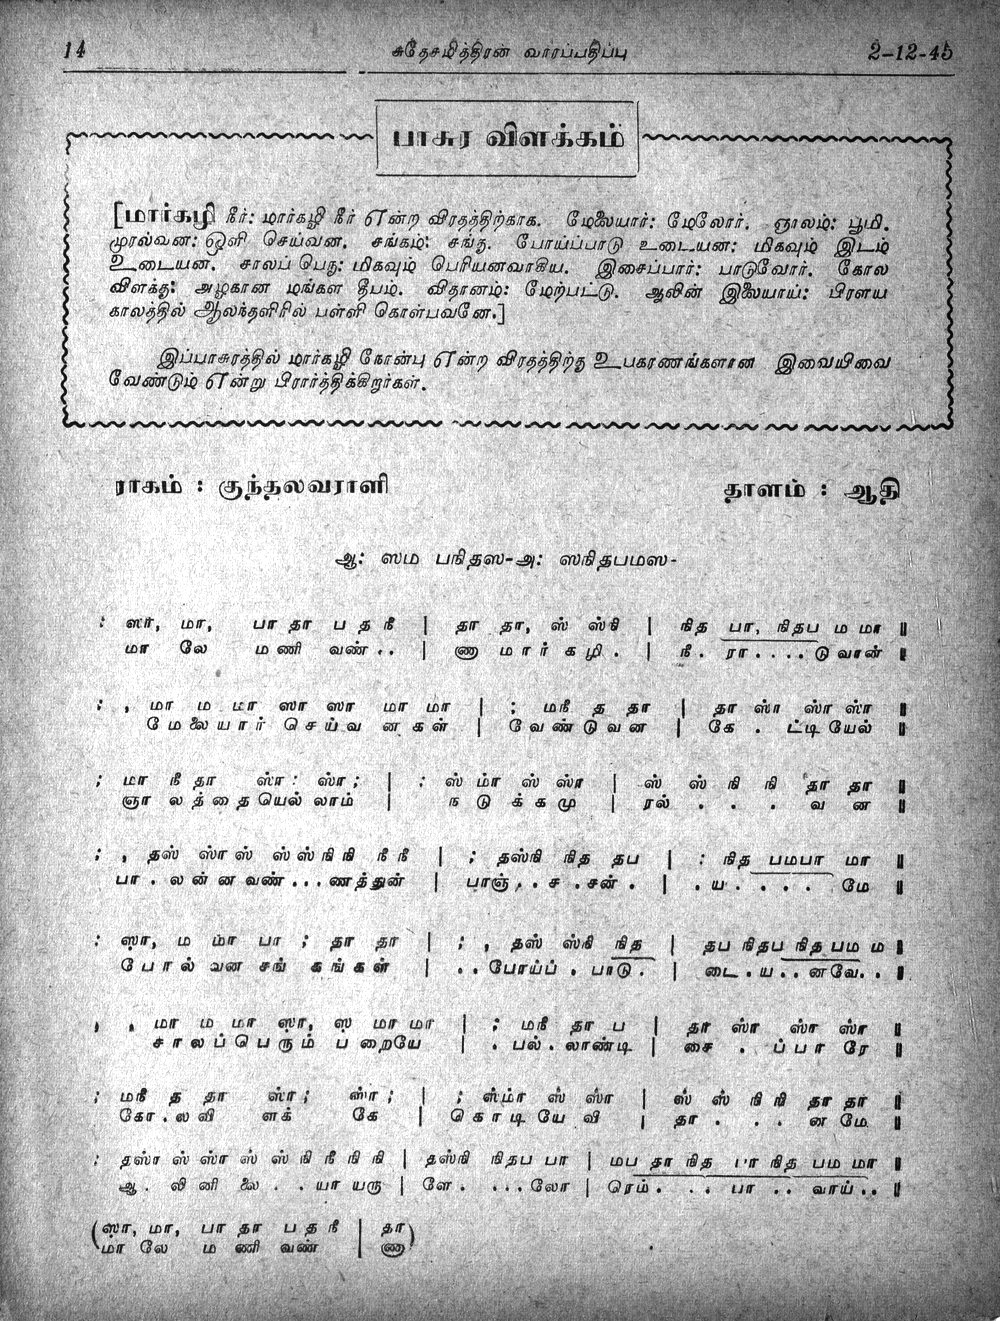 14 சுதேசமித்திரன் வாரப்பதிப்பு 2-12-45
பாசுர விளக்கம்
[மார்கழி நீர்: மார்கழி நீர் என்ற விரதத்திற்காக. மேலையார்: மேலோர். ஞாலம்: பூமி.
முரல்வன: ஒளி செய்வன. சங்கம்: சங்கு. போய்ப்பாடு உடையன: மிகவும் இடம்
உடையன. சாலப் பெரு: மிகவும் பெரியனவாகிய. இசைப்பார்: பாடுவோர். கோல
விளக்கு: அழகான மங்கள தீபம். விதானம்: மேற்பட்டு. ஆலின் இலையாய்: பிரளய
காலத்தில் ஆலந்தளிரில் பள்ளி கொள்பவனே.]
இப்பாசுரத்தில் மார்கழி நோன்பு என்ற விரதத்திற்கு உபகரணங்களான இவையிவை
வேண்டும் என்று பிரார்த்திக்கிறார்கள்.
ராகம் : குந்தலவராளி தாளம் : ஆதி
ஆ: ஸம பநிதஸ-அ: ஸநிதபமஸ-
; ஸா, மா, பா தா ப த நீ | தா தா, ஸ் ஸ்நி | நித பா, நிதப ம மா ||
மா லே மணி வண்.. | ணு மார் கழி . | நீ. ரா . . . . டு வான் ||
; , மா ம மா ஸா ஸா மா மா | ; மநீ த தா | தா ஸ்ா ஸ்ா ஸ்ா ||
மே லை யார் செய்வ ன கள் | வே ண் டு வன | கே . ட்டி யேல் ||
; மா நீ தா ஸ்ா: ஸ்ா; | : ஸ் ம்ா ஸ் ஸ்ா | ஸ் ஸ் நி நி தா தா ||
ஞா லத்தையெல் லாம் | ந டு க் கமு | ரல் . . . வ ன ||
; , தஸ் ஸ்ாஸ் ஸ்ஸ்நிநி நீ நீ | ; தஸ்நி நித தப | : நித பமபா மா ||
பா . லன்னவண்...ணத்துன் | பாஞ்..ச .சன். | .ய . . . . மே ||
: ஸா, ம மா பா ; தா தா | ; , தஸ் ஸ்நி நித | தப நிதப நிதபம ம ||
போல் வன சங் கங்கள் | . . போய்ப் . பாடு . | டை . ய . . னவே.. ||
, , மா ம மா ஸா, ஸ மா மா | ; மநீ தா ப | தா ஸ்ா ஸ்ா ஸ்ா ||
சா லப்பெரும் ப் றையே | . பல்.லாண்டி | சை . ப் பா ரே ||
; மநீ த தா ஸ்ா; ஸ்ா; | ; ஸ்ம்ா ஸ் ஸ்ா | ஸ் ஸ் நி நி தா தா ||
கோ.லவி ளக் கே | கொ டி யே வி | தா . . . ன மே ||
: தஸ்ா ஸ் ஸ்ா ஸ் ஸ் நி நீ நி நி | தஸ்நி நிதப பா | மப தா நித பா நித பம மா ||
ஆ . லி னி லை . . யா யரு | ளே . ...லோ | ரெம் . . . பா . . வாய் . . ||
(ஸா, மா, பா தா ப த நீ | தா)
(மா லே ம ணி வண் | ணு)